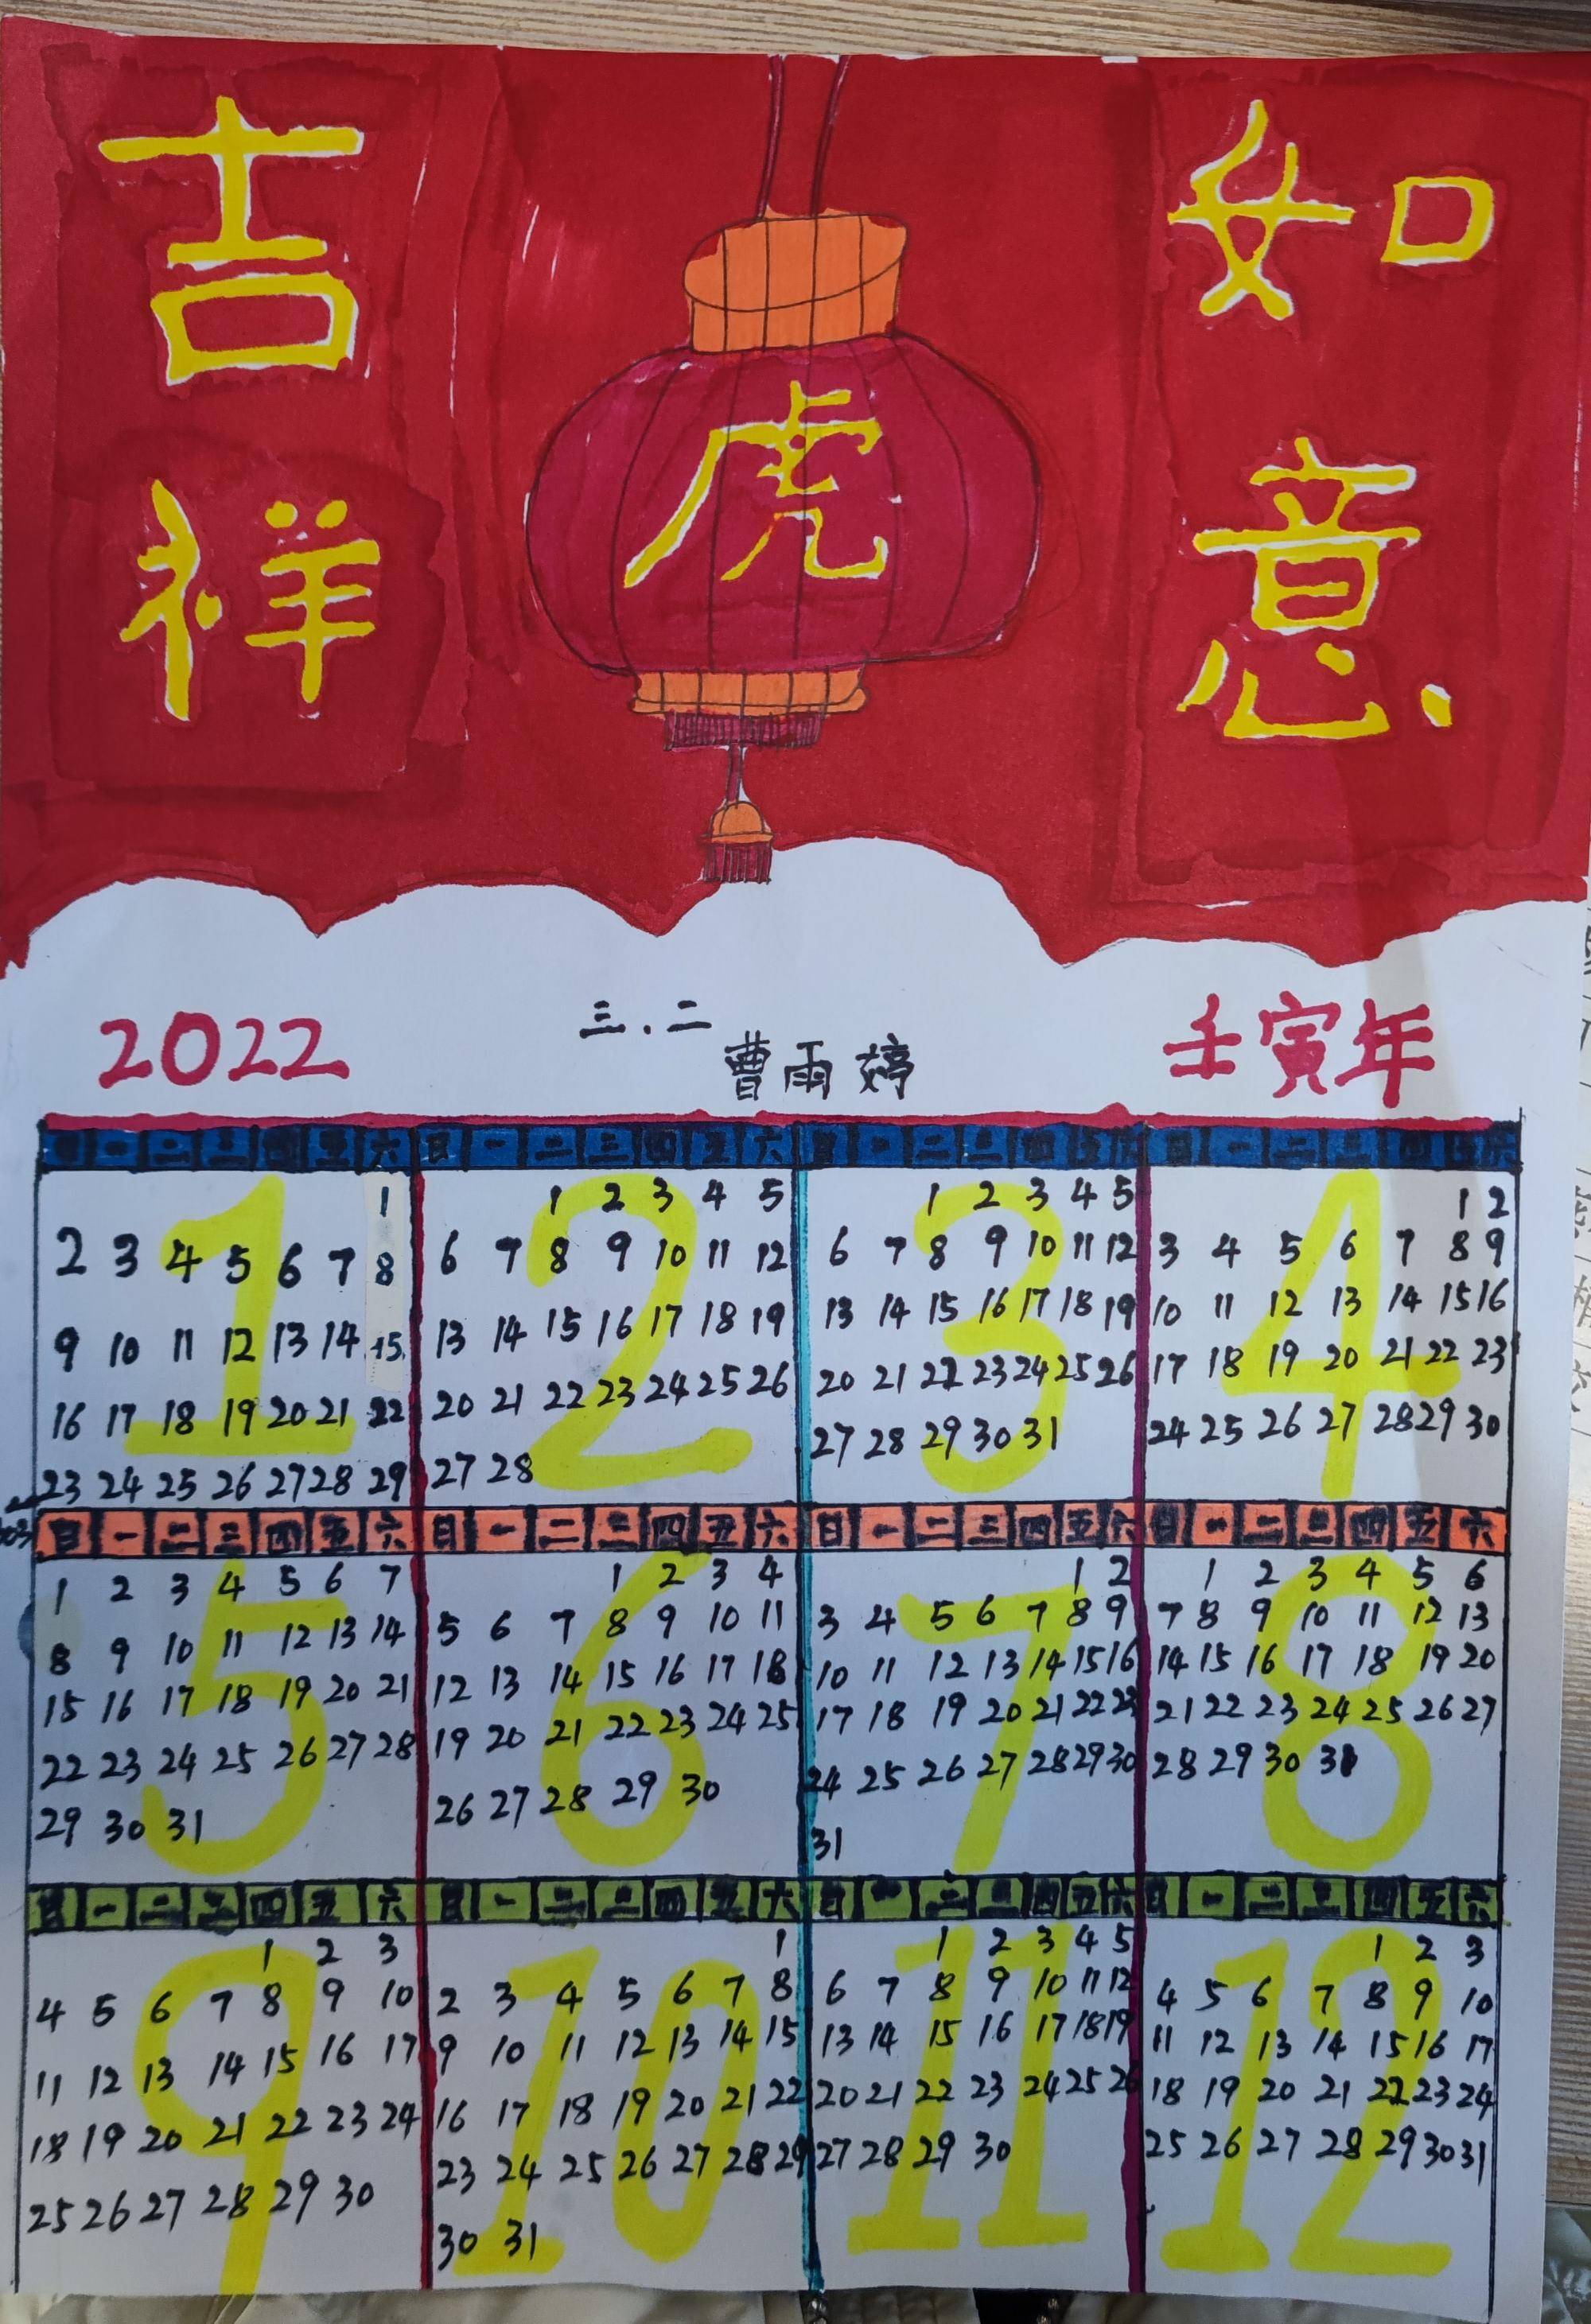 吉祥
虎
如意
2022
三.二
曹雨婷
壬寅年
日 一 二 三 四 五 六
1
1
2 3 4 5 6 7 8
9 10 11 12 13 14 15
16 17 18 19 20 21 22
23 24 25 26 27 28 29
日 一 二 三 四 五 六
2
1 2 3 4 5
6 7 8 9 10 11 12
13 14 15 16 17 18 19
20 21 22 23 24 25 26
27 28
日 一 二 三 四 五 六
3
1 2 3 4 5
6 7 8 9 10 11 12
13 14 15 16 17 18 19
20 21 22 23 24 25 26
27 28 29 30 31
日 一 二 三 四 五 六
4
1 2
3 4 5 6 7 8 9
10 11 12 13 14 15 16
17 18 19 20 21 22 23
24 25 26 27 28 29 30
日 一 二 三 四 五 六
5
1 2 3 4 5 6 7
8 9 10 11 12 13 14
15 16 17 18 19 20 21
22 23 24 25 26 27 28
29 30 31
日 一 二 三 四 五 六
6
1 2 3 4
5 6 7 8 9 10 11
12 13 14 15 16 17 18
19 20 21 22 23 24 25
26 27 28 29 30
日 一 二 三 四 五 六
7
1 2
3 4 5 6 7 8 9
10 11 12 13 14 15 16
17 18 19 20 21 22 23
24 25 26 27 28 29 30
31
日 一 二 三 四 五 六
8
1 2 3 4 5 6
7 8 9 10 11 12 13
14 15 16 17 18 19 20
21 22 23 24 25 26 27
28 29 30 31
日 一 二 三 四 五 六
9
1 2 3
4 5 6 7 8 9 10
11 12 13 14 15 16 17
18 19 20 21 22 23 24
25 26 27 28 29 30
日 一 二 三 四 五 六
10
1
2 3 4 5 6 7 8
9 10 11 12 13 14 15
16 17 18 19 20 21 22
23 24 25 26 27 28 29
30 31
日 一 二 三 四 五 六
11
1 2 3 4 5
6 7 8 9 10 11 12
13 14 15 16 17 18 19
20 21 22 23 24 25 26
27 28 29 30
日 一 二 三 四 五 六
12
1 2 3
4 5 6 7 8 9 10
11 12 13 14 15 16 17
18 19 20 21 22 23 24
25 26 27 28 29 30 31